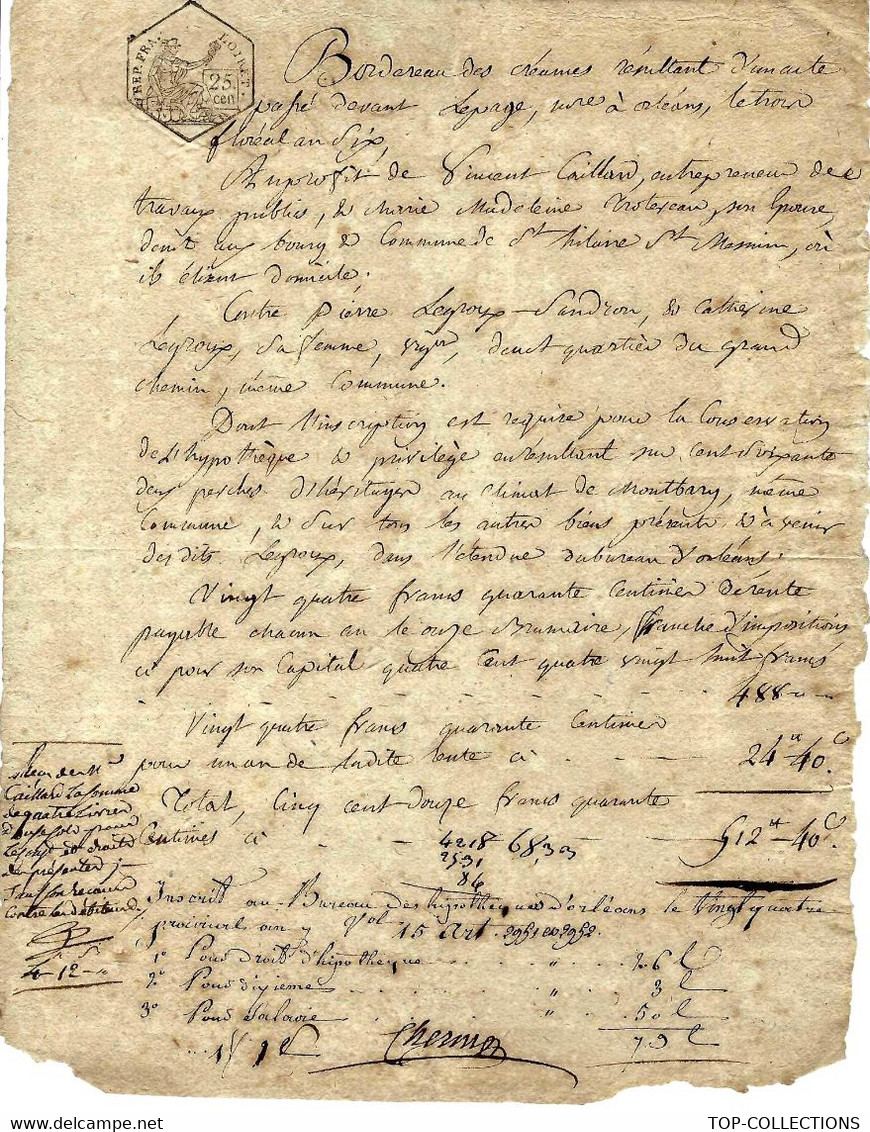 REP. FRA. LOIRET.
25 cen
Bordereau des créances résultant d'un acte
passé devant Lepage, nore à orléans, le trois
floréal an Six,
Au profit de Vincent Caillard, entrepreneur de
travaux publics, & Marie Madeleine Trotereau, son Epouse,
demt au bourg & Commune de St hilaire St Mesmin, où
ils élisent domicile.
Contre pierre Legroux-Landron, & Catherine
Legroux, sa femme, vigns, demt quartier du grand
chemin, même Commune.
Dont l'inscription est requise pour la Conservation
de L'hypothèque & privilège en résultant sur Cent soixante
deux perches d'héritages au Climat de Montbary, même
Commune, & sur tous les autres biens présents & à venir
des dits Legroux, dans l'étendue du bureau d'orléans.
Vingt quatre francs quarante Centimes de rente
payable chacun an le onze Brumaire, franche d'impositions
ci pour son Capital quatre Cent quatre vingt huit francs
488 " "
Vingt quatre francs quarante Centimes
pour un an de ladite rente ci - - - 24 tt 40 c.
Total, Cinq Cent douze francs quarante
Centimes ci - - - 512 tt 40 c.
4218 68,33
2531
84
Inscrit au Bureau des hipotheques d'orléans le Vingt quatre
prairial an 7 Vol 15 Art. 2951 et 2952.
1° Pour droit d'hipotheque " 26 c
2° Pour dixieme " 3 c
3° Pour Salaire " 50 c
79 c
Caillard la somme
de quatre livres
Douze sols pour
contre les débiteurs
4 - 12 s